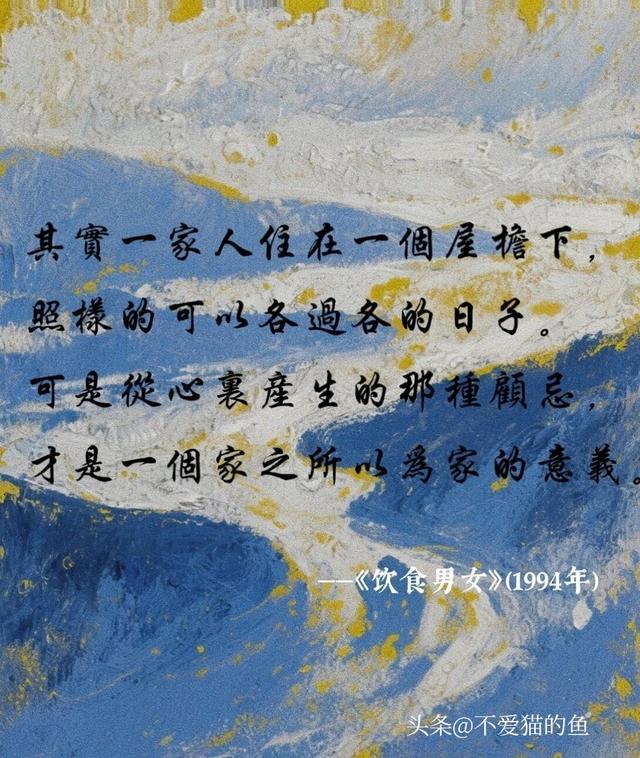 其實一家人住在一個屋檐下，
照樣的可以各過各的日子。
可是從心裏産生的那種顧忌，
才是一個家之所以爲家的意義。
——《饮食男女》(1994年)
头条@不爱猫的鱼